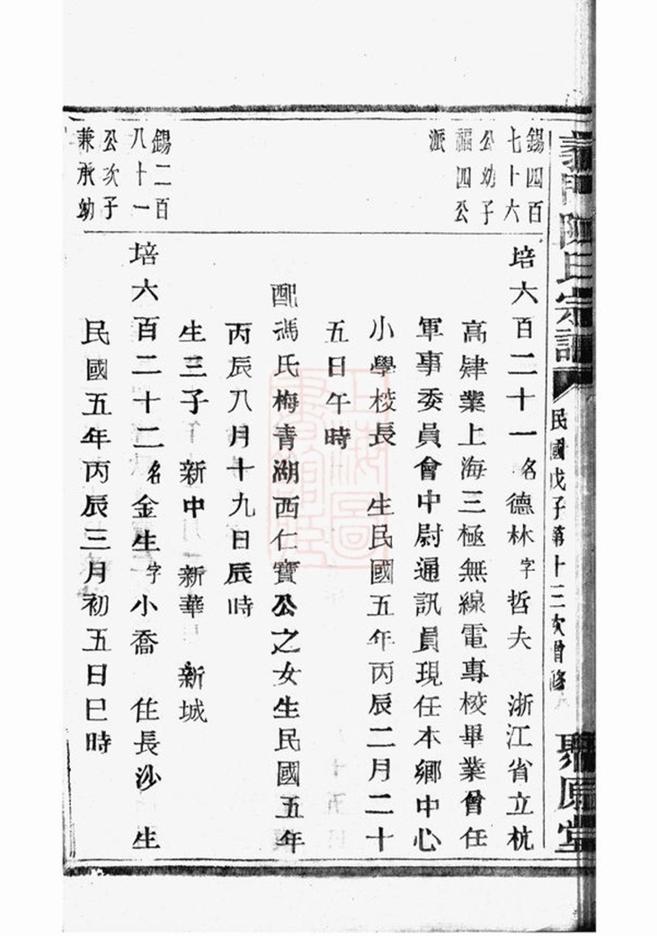 義門陳氏宗譜
民國戊子第十三次曾修
聚原堂
錫四百
七十六
公幼子
福四公
派
培六百二十一名德林字哲夫 浙江省立杭
高肄業上海三極無線電專校畢業曾任
軍事委員會中尉通訊員現任本鄉中心
小學校長 生民國五年丙辰二月二十
五日午時
配馮氏梅青湖西仁寶公之女生民國五年
丙辰八月十九日辰時
生三子 新中 新華 新城
錫二百
八十一
公次子
兼承幼
培六百二十二名金生字小喬 住長沙 生
民國五年丙辰三月初五日巳時
上海圖
書館藏